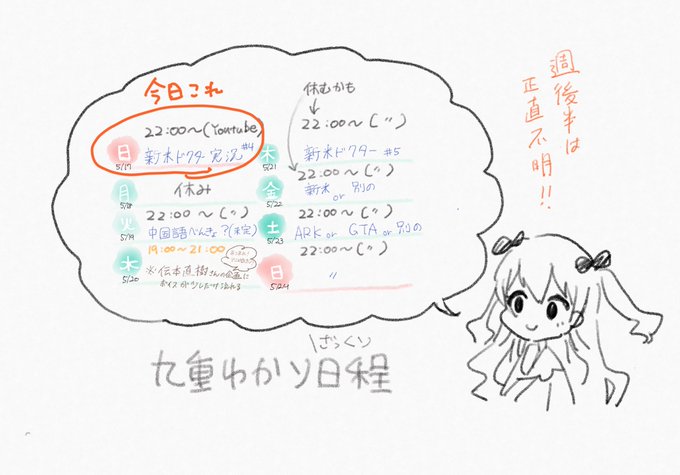 今日これ
22:00～(Youtube)
日 5/17 新米ドクター実況#4
月 5/18 休み
22:00～(〃)
火 5/19 中国語べんきょ?(未定)
19:00～21:00
水 5/20 ※伝本直樹さんの企画に
ボイスが少しだけ流れる
休むかも
22:00～(〃)
木 5/21 新米ドクター #5
22:00～(〃)
金 5/22 新米 or 別の
22:00～(〃)
土 5/23 ARK or GTA or 別の
22:00～(〃)
日 5/24 〃
週後半は
正直不明!!
ざっくり
九重わかり日程